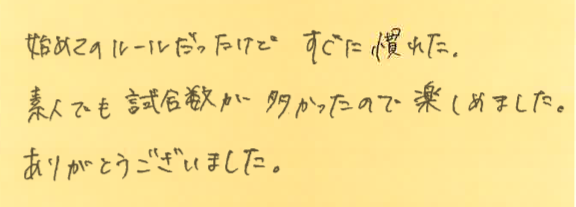 始めてのルールだったけど すぐに慣れた.
素人でも試合数が多かったので楽しめました。
ありがとうございました。